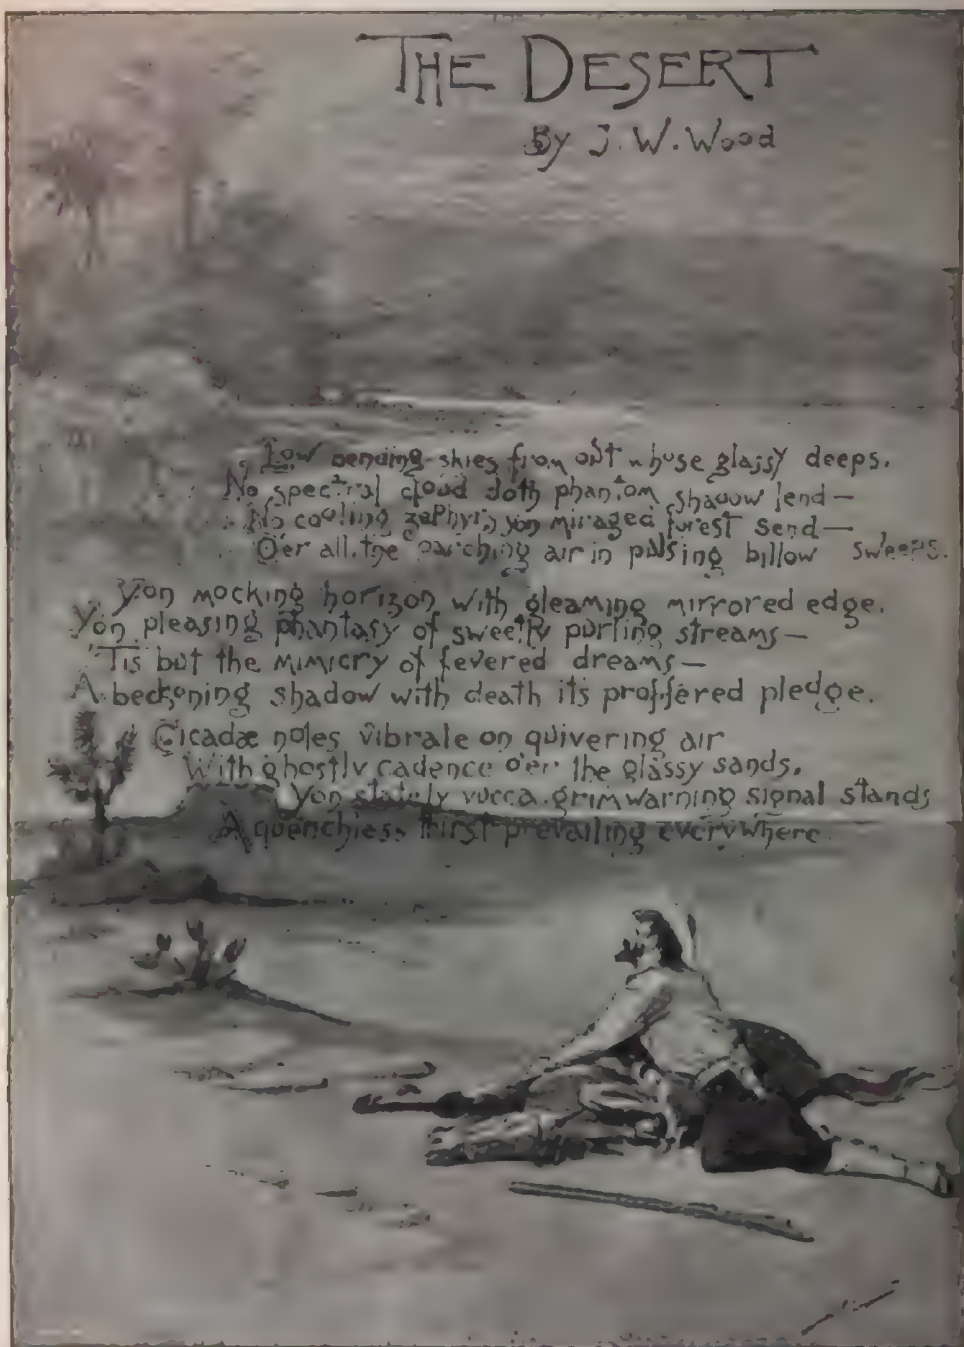 THE DESERT
By J. W. Wood
Low bending skies from out whose glassy deeps.
No spectral cloud doth phantom shadow lend—
No cooling zephyrs yon miraged forest send—
O'er all the parching air in pulsing billow sweeps.
Yon mocking horizon with gleaming mirrored edge.
Yon pleasing phantasy of sweetly purling streams—
'Tis but the mimicry of fevered dreams—
A beckoning shadow with death its proffered pledge.
Cicadæ notes vibrate on quivering air
With ghostly cadence o'er the glassy sands.
Yon stately yucca grim warning signal stands
A quenchless thirst prevailing everywhere